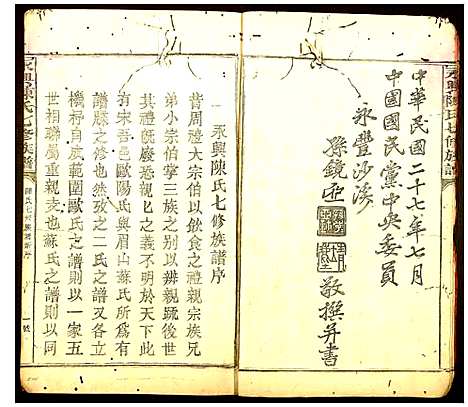 中華民國二十七年七月
中國國民黨中央委員
永豐沙溪
孫鏡亞
敬撰并書
永興陳氏七修族譜
永興陳氏七修族譜序
昔周禮大宗伯以飲食之禮親宗族兄
弟小宗伯掌三族之別以辨親疎後世
其禮旣廢恐親匕之義不明於天下故
有宋吾邑歐陽氏與眉山蘇氏所爲有
譜牒之修也然攷之二氏之譜又各以
其是爲範圍歐氏之譜則以一家五
世相聯屬重親支也蘇氏之譜則以同
永興陳氏七修族譜
陳氏七修族譜新序
一號